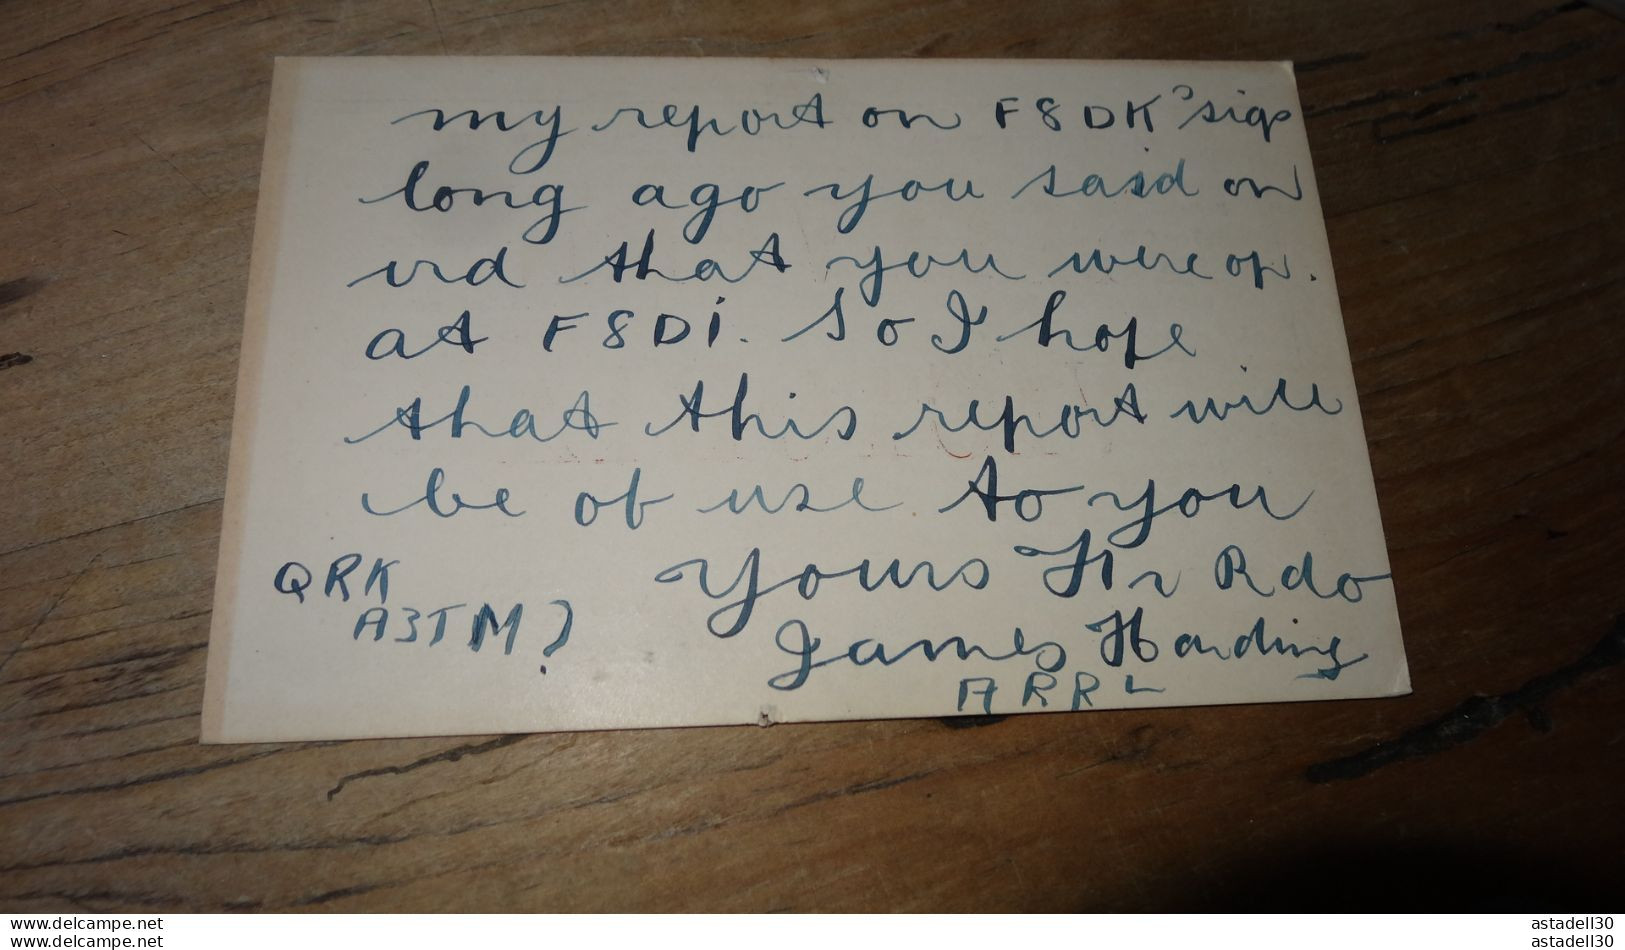 my report on F8DK's sigs
long ago you said on
crd that you were op.
at F8DI. So I hope
that this report will
be of use to you
Yours Fr Rdo
James Harding
ARRL
QRK
A3TM?
www.delcampe.net
www.delcampe.net
astadell30
astadell30